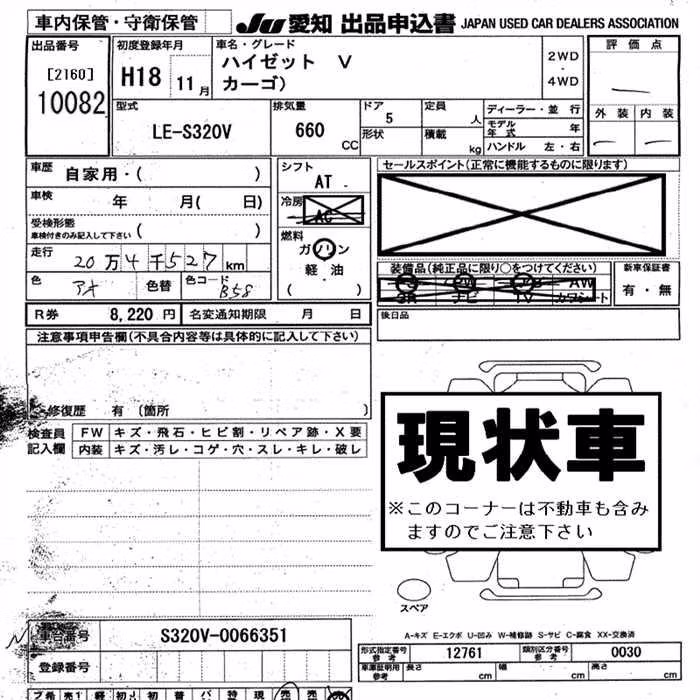 車内保管・守衛保管
JU 愛知 出品申込書 JAPAN USED CAR DEALERS ASSOCIATION
出品番号
[2160]
10082
初度登録年月
H18 11月
車名・グレード
ハイゼット V
カーゴ)
2WD
・
4WD
評価点
外装 内装
型式
LE-S320V
排気量
660 CC
ドア
5
形状
定員
人
積載
kg
ディーラー・並行
モデル年式 年
ハンドル 左・右
車歴
自家用・( )
車検
年 月( 日)
受検形態
車検付きのみ記入して下さい ( )
走行
20万4千527km
色
アオ
色替
色コード
B58
シフト
AT
冷房
AC
燃料
ガソリン
軽油
( )
セールスポイント(正常に機能するものに限ります)
装備品(純正品に限り○をつけてください)
AW
SR ナビ TV カワシート
新車保証書
有・無
後日品
R券 8,220円 名変通知期限 月 日
注意事項申告欄(不具合内容等は具体的に記入して下さい)
修復歴 有(箇所 )
検査員
記入欄
FW キズ・飛石・ヒビ割・リペア跡・X要
内装 キズ・汚レ・コゲ・穴・スレ・キレ・破レ
現状車
※このコーナーは不動車も含み
ますのでご注意下さい
スペア
A-キズ E-エクボ U-凹み W-補修跡 S-サビ C-腐食 XX-交換済
車台番号 S320V-0066351
登録番号
形式指定番号
参考
12761
類別区分番号
参考
0030
車庫証明用
参考
長さ cm 幅 cm 高さ cm